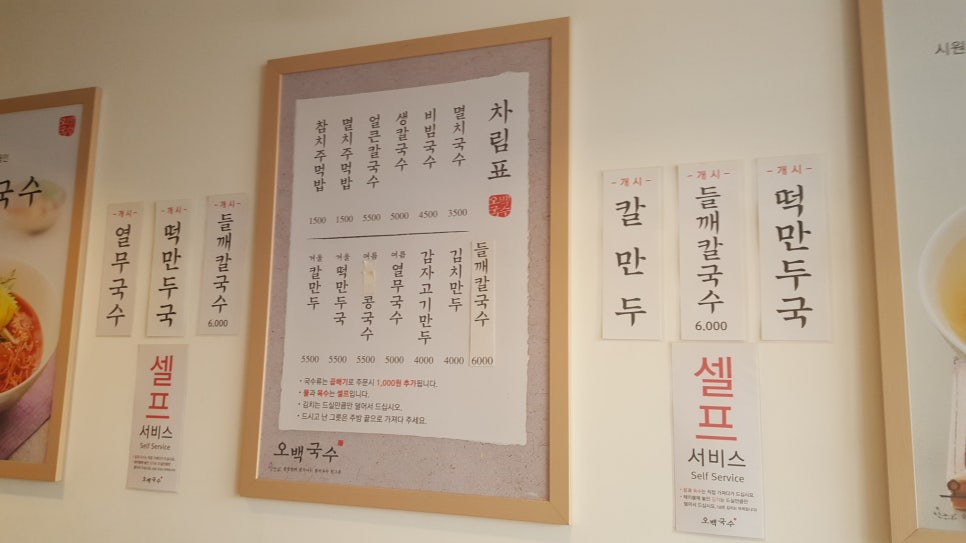 국수
- 개시 -
열무국수
- 개시 -
떡만두국
- 개시 -
들깨칼국수
6,000
셀프
서비스
Self Service
오백국수
차림표
오백국수
멸치국수 3500
비빔국수 4500
생칼국수 5000
얼큰칼국수 5500
멸치주먹밥 1500
참치주먹밥 1500
들깨칼국수 6000
김치만두 4000
감자고기만두 4000
여름 열무국수 5000
여름 콩국수 5500
겨울 떡만두국 5500
겨울 칼만두 5500
• 국수류는 곱빼기로 주문시 1,000원 추가됩니다.
• 물과 육수는 셀프입니다.
• 김치는 드실만큼만 덜어서 드십시오.
• 드시고 난 그릇은 주방 끝으로 가져다 주세요.
오백국수
- 개시 -
칼만두
- 개시 -
들깨칼국수
6,000
- 개시 -
떡만두국
셀프
서비스
Self Service
오백국수
시원